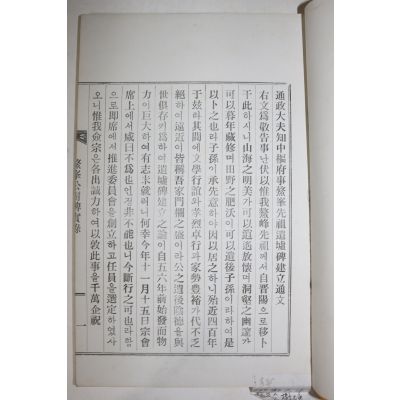 通政大夫知中樞府事鰲峯先祖遺墟碑建立通文
右文爲敬告事난伏以惟我鰲峰先祖께서自晋陽으로移卜
于此하시니山海之明美가可以逍遙放懷며洞壑之幽邃가
可以暮年藏修며田野之肥沃이可以遺後子孫이라하여是
以卜之也라子孫이承先意하야因以居之하니殆近四百年
于玆라其間에文學行誼와孝烈卓行과家勢豊裕가代不乏
絶하야遠近이皆稱吾家門闌之盛이라公之遺後陰德을與
世俱存키爲하여遺墟碑建立之論이自五六年前始發而物
力이巨大하여有志未就러니何幸今年十一月十五日宗會
席上에서咸曰不爲也언정非不能也니今斷行之可也라함
으로即席에서推進委員會을創立하고任員을選定하였사
오니惟我僉宗은各出誠力하여以敦此事을千萬企祝
鰲峯公 碑實錄
一